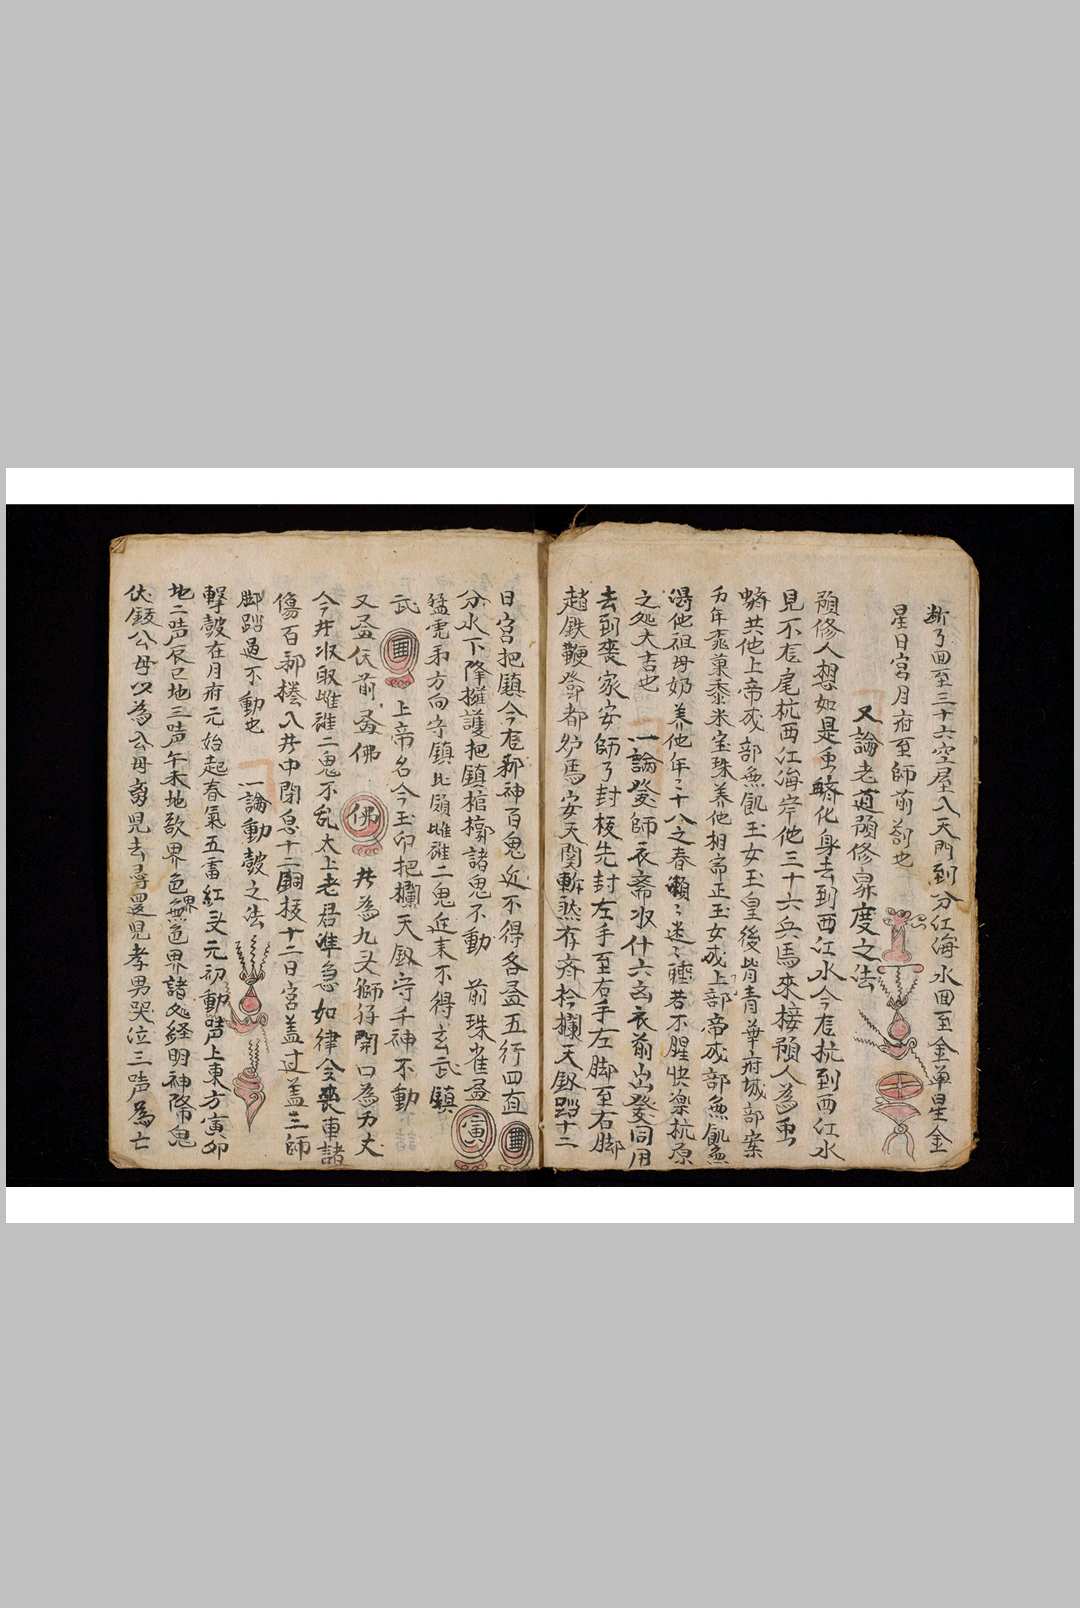 断了回至三十六空屋入天門到分江海水回至金单星金
星日宮月府至師前劄也
又論老道預修升度之法
預修人想如是虫化身去到西江水今在抗到西江水
見不在尾杭西江海岸他三十六兵馬來接預人為虫
共他上帝成部無飢王女玉皇後皆青華府城部案
万年菓黍米宝珠养他相帝正玉女成上部帝成部無飢無
渴他祖母奶养他年二十八之春懶〻迷〻若不腥快楽抗原
之处大吉也 一論登師衣斋水什六玄衣前出登同用
去到喪家安師了封棺先封左手至右手左脚至右脚
趙鉄鞭鄧都馬安天関斬然存斉欄天釼踏十二
日宮把鎮今在新神百鬼近不得各孟五行四直
分水下降擁護把鎮棺槨諸鬼不動 前珠雀孟 寅
猛虎弟方向守鎮比頭雌雄二鬼近未不得玄武鎮
武 上帝名今玉印把欄天釼守千神不動
又孟佐前孟佛 佛 共為九又獅仔開口為万丈
今井水取雌雄二鬼不乱太上老君准急如律令喪車諸
傷百部入井中閉息十二銅技十二日宮盖过盖三師
脚踏過不動也 一論動鼓之法
擊鼓在月府元始起春氣五畜紅又元初動声上東方寅卯
地二声辰巳地三声午未地欲界色界無色界諸处経明神降鬼
伏鈒公母以為公母男見去尋還見孝男哭泣三声為亡